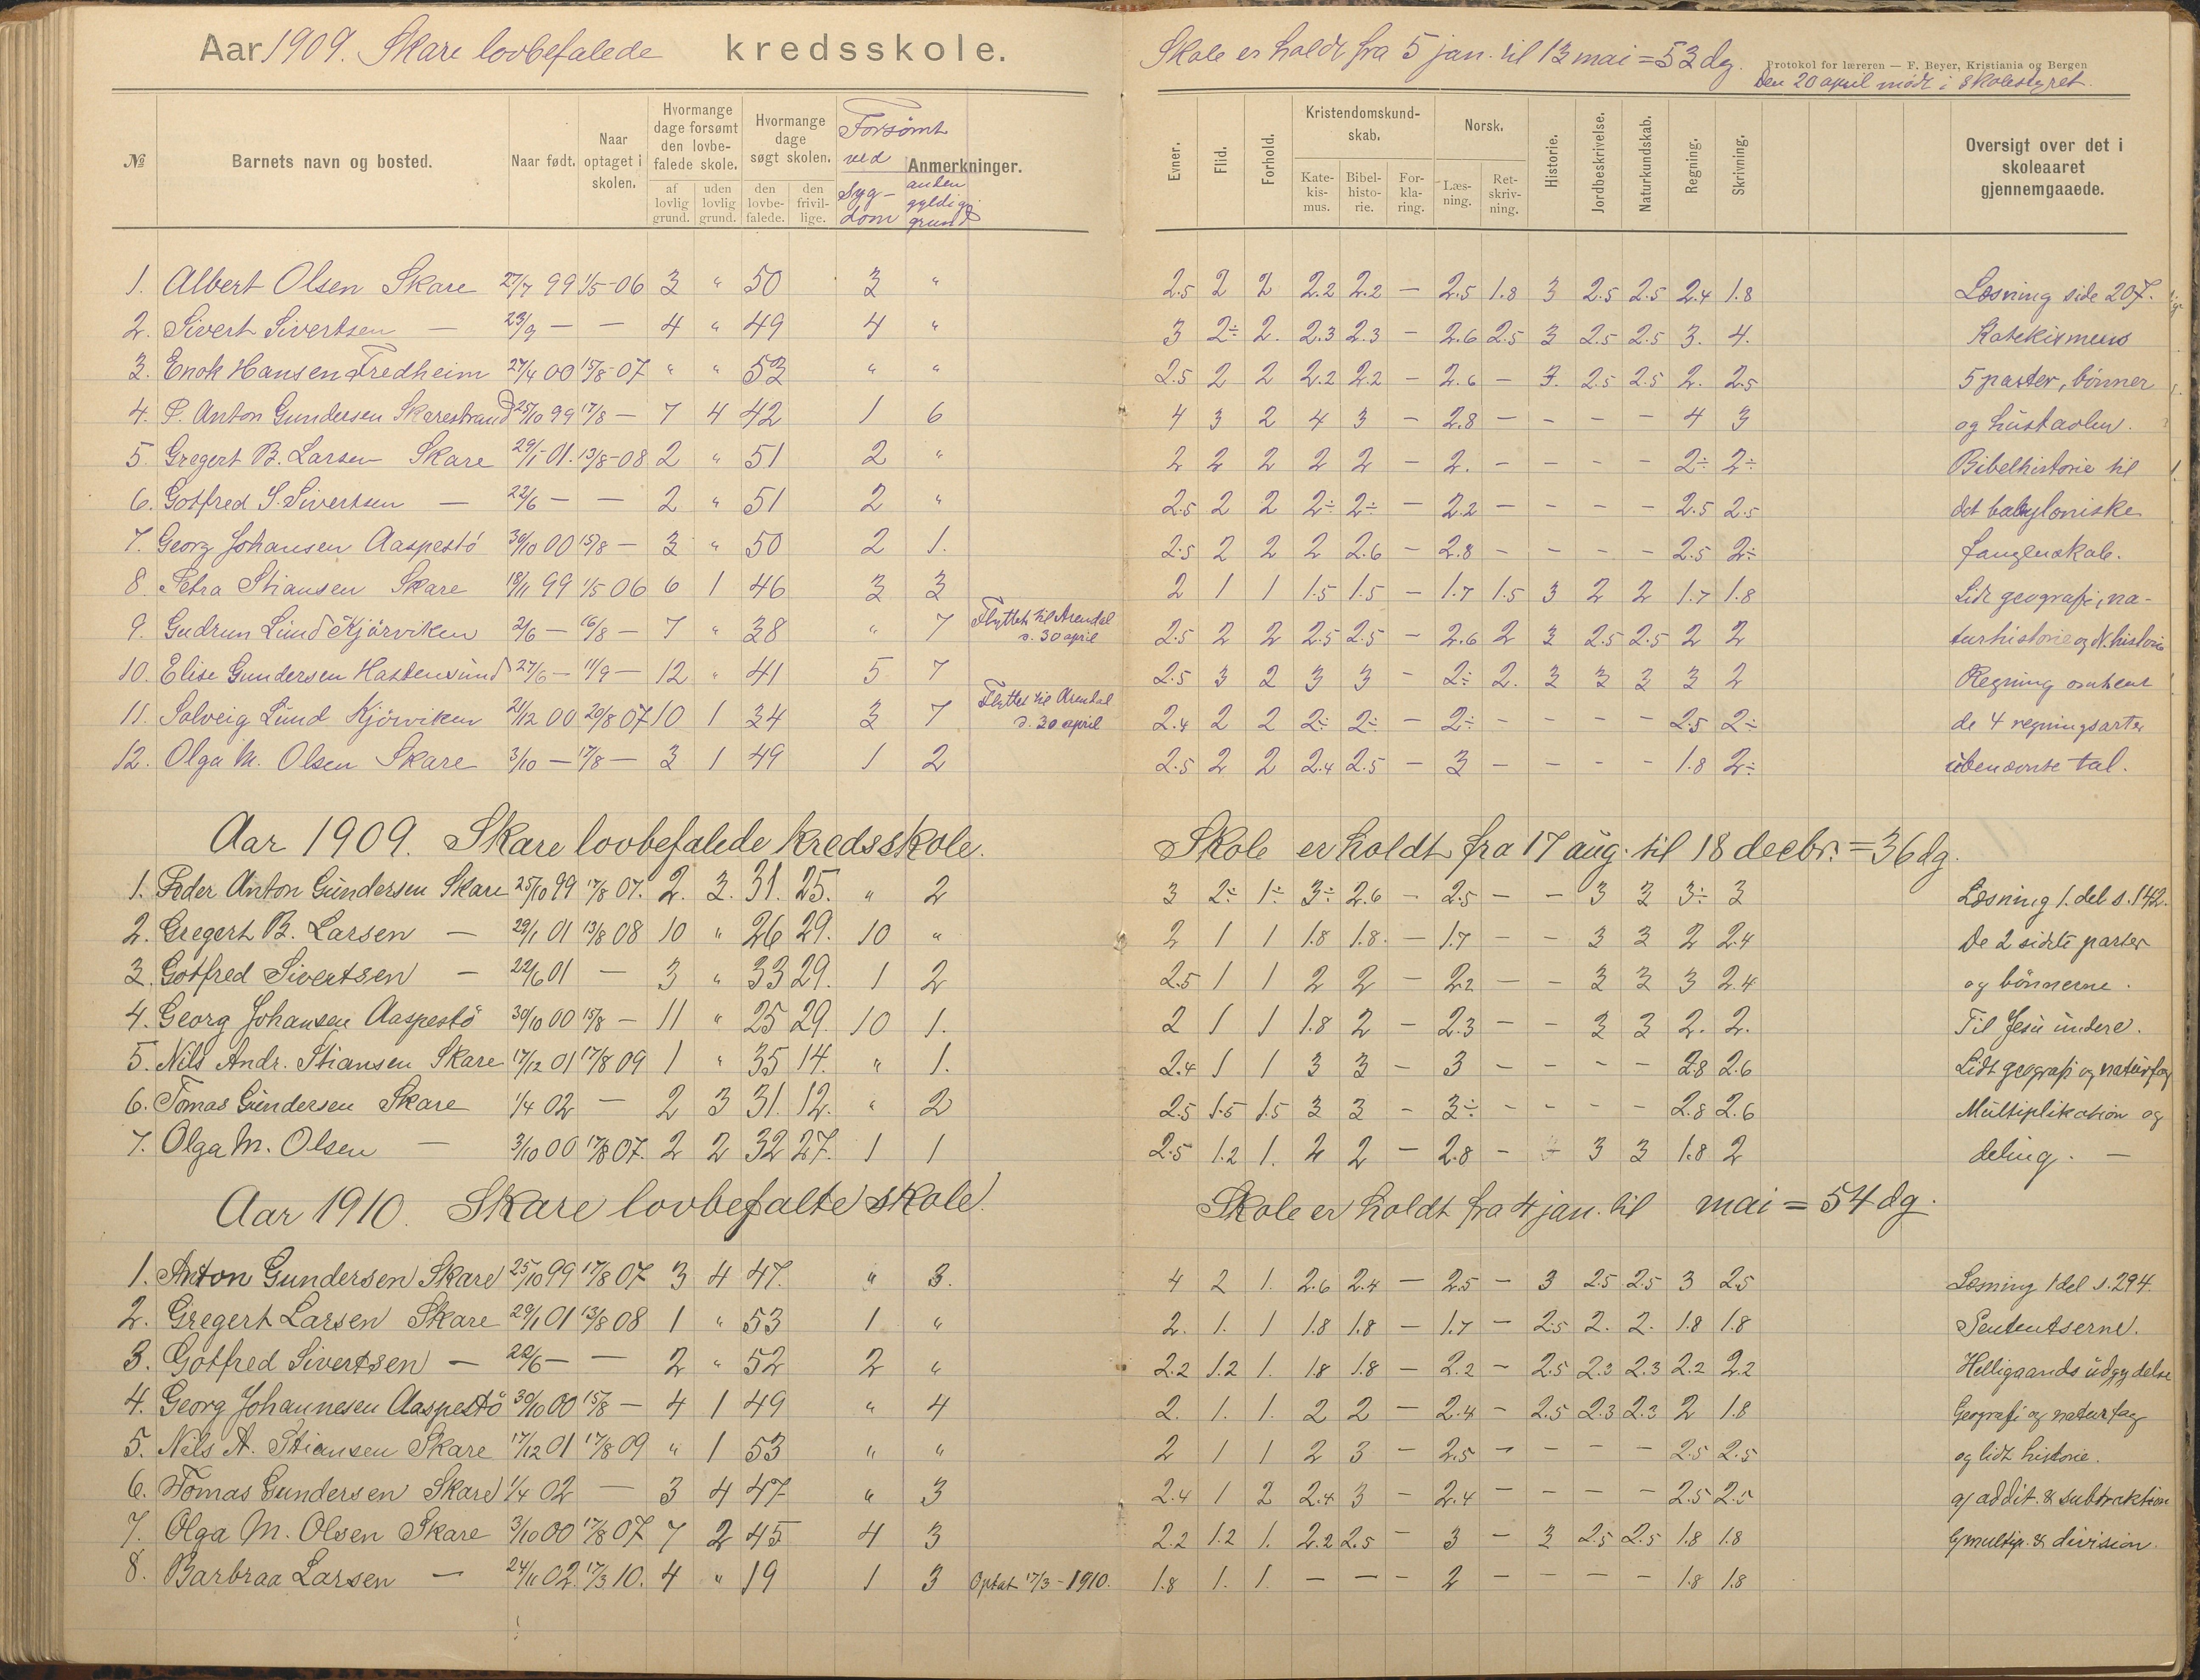 Aar 1909. Skare lovbefalede kredsskole.
Skole er holdt fra 5 jan. til 13 mai = 53 dg.
Protokol for læreren — F. Beyer, Kristiania og Bergen
Den 20 april mødt i skolestyret.
№ Barnets navn og bosted. Naar født. Naar optaget i skolen. Hvormange dage forsømt den lovbefalede skole. af lovlig grund. uden lovlig grund. Hvormange dage søgt skolen. den lovbefalede. den frivillige. Forsømt ved Sygdom anden gyldig grund Anmerkninger.
Evner. Flid. Forhold. Kristendomskundskab. Katekismus. Bibelhistorie. Forklaring. Norsk. Læsning. Retskrivning. Historie. Jordbeskrivelse. Naturkundskab. Regning. Skrivning. Oversigt over det i skoleaaret gjennemgaaede.
1. Albert Olsen Skare 27/7 99 1/5-06 3 " 50 3 " 2.5 2 2 2.2 2.2 — 2.5 1.8 3 2.5 2.5 2.4 1.8 Læsning side 207.
2. Sivert Sivertsen — 23/9 — — 4 " 49 4 " 3 2÷ 2. 2.3 2.3 — 2.6 2.5 3 2.5 2.5 3. 4. Katekismens
3. Enok Hansen Fredheim 27/4 00 15/8-07 " " 53 " " 2.5 2 2 2.2 2.2 — 2.6 — 3. 2.5 2.5 2. 2.5 5 parter, bønner
4. P. Anton Gundersen Skarestrand 25/10 99 17/8 — 7 4 42 1 6 4 3 2 4 3 — 2.8 — — — — 4 3 og hustavlen.
5 Gregert B. Larsen Skare 29/1 01. 13/8-08 2 " 51 2 " 2 2 2 2 2 — 2. — — — — 2÷ 2÷ Bibelhistorie til
6. Gotfred S. Sivertsen — 22/6 — — 2 " 51 2 " 2.5 2 2 2÷ 2÷ — 2.2 — — — — 2.5 2.5 det babyloniske
7. Georg Johansen Aaspestø 30/10 00 15/8 — 3 " 50 2 1. 2.5 2 2 2 2.6 — 2.8 — — — — 2.5 2÷ fangenskab.
8. Petra Stiansen Skare 18/11 99 1/5 06 6 1 46 3 3 2 1 1 1.5 1.5 — 1.7 1.5 3 2 2 1.7 1.8 Lidt geografi, na-
9. Gudrun Lund Kjørviken 2/6 — 16/8 — 7 " 38 " 7 Flyttet til Arendal d. 30 april 2.5 2 2 2.5 2.5 — 2.6 2 3 2.5 2.5 2 2 turhistorie og N. historie
10. Elise Gundersen Hastensund 27/6 — 11/9 — 12 " 41 5 7 2.5 3 2 3 3 — 2÷ 2. 3 3 3 3 2 Regning omhent
11. Solveig Lund Kjørviken 21/12 00 20/8 07 10 1 34 3 7 Flyttet til Arendal d. 30 april 2.4 2 2 2÷ 2÷ — 2÷ — — — — 2.5 2÷ de 4 regningsarter
12. Olga M. Olsen Skare 3/10 — 17/8 — 3 1 49 1 2 2.5 2 2 2.4 2.5 — 3 — — — — 1.8 2÷ ubenævnte tal.
Aar 1909. Skare lovbefalede kredsskole. Skole er holdt fra 17 aug. til 18 decbr. = 36 dg.
1. Peder Anton Gundersen Skare 25/10 99 17/8 07. 2. 3. 31. 25. " 2 3 2÷ 1÷ 3÷ 2.6 — 2.5 — — 3 3 3÷ 3 Læsning 1. del s. 142.
2. Gregert B. Larsen — 29/1 01 13/8 08 10 " 26 29. 10 " 2 1 1 1.8 1.8. — 1.7 — — 3 3 2 2.4 De 2 sidste parter
3. Gotfred Sivertsen — 22/6 01 — 3 " 33 29. 1 2 2.5 1 1 2 2 — 2.2 — — 3 3 3 2.4 og bønnerne.
4. Georg Johansen Aaspestø 30/10 00 15/8 — 11 " 25 29. 10 1. 2 1 1 1.8 2 — 2.3 — — 3 3 2. 2. Til Jesu undere.
5. Nils Andr. Stiansen Skare 17/12 01 17/8 09 1 " 35 14. " 1. 2.4 1 1 3 3 — 3 — — — — 2.8 2.6 Lidt geografi og naturfag
6. Tomas Gundersen Skare 1/4 02 — 2 3 31. 12. " 2 2.5 1.5 1.5 3 3 — 3÷ — — — — 2.8 2.6 Multiplikation og
7. Olga M. Olsen — 3/10 00 17/8 07. 2 2 32 27. 1 1 2.5 1.2 1. 2 2 — 2.8 — — 3 3 1.8 2 deling. —
Aar 1910. Skare lovbefalte skole. Skole er holdt fra 4 jan. til mai = 54 dg.
1. Anton Gundersen Skare 25/10 99 17/8 07 3 4 47. " 3. 4 2 1. 2.6 2.4 — 2.5 — 3 2.5 2.5 3 2.5 Læsning 1 del s. 294.
2. Gregert Larsen Skare 29/1 01 13/8 08 1 " 53 1 " 2. 1. 1 1.8 1.8 — 1.7 — 2.5 2. 2. 1.8 1.8
3. Gotfred Sivertsen — 22/6 — — 2 " 52 2 " 2.2 1.2 1. 1.8 1.8 — 2.2 — 2.5 2.3 2.3 2.2 2.2 Helligaands udgydelse
4. Georg Johannesen Aaspestø 30/10 00 15/8 — 4 1 49 " 4 2. 1. 1. 2 2 — 2.4 — 2.5 2.3 2.3 2 1.8 Geografi og naturfag
5. Nils A. Stiansen Skare 17/12 01 17/8 09 " 1 53 " " 2 1 1 2 3 — 2.5 — — — — 2.5 2.5 og lidt historie.
6. Tomas Gundersen Skare 1/4 02 — 3 4 47 " 3 2.4 1 2 2.4 3 — 2.4 — — — — 2.5 2.5 a) addit. & subtraktion
7. Olga M. Olsen Skare 3/10 00 17/8 07 7 2 45 4 3 2.2 1.2 1. 2.2 2.5 — 3 — 3 2.5 2.5 1.8 1.8 b) multip. & division.
8. Barbraa Larsen — 24/11 02. 17/3 10. 4 " 19 1 3 Optat 17/3-1910. 1.8 1. 1. — — — 2 — — — — 1.8 1.8